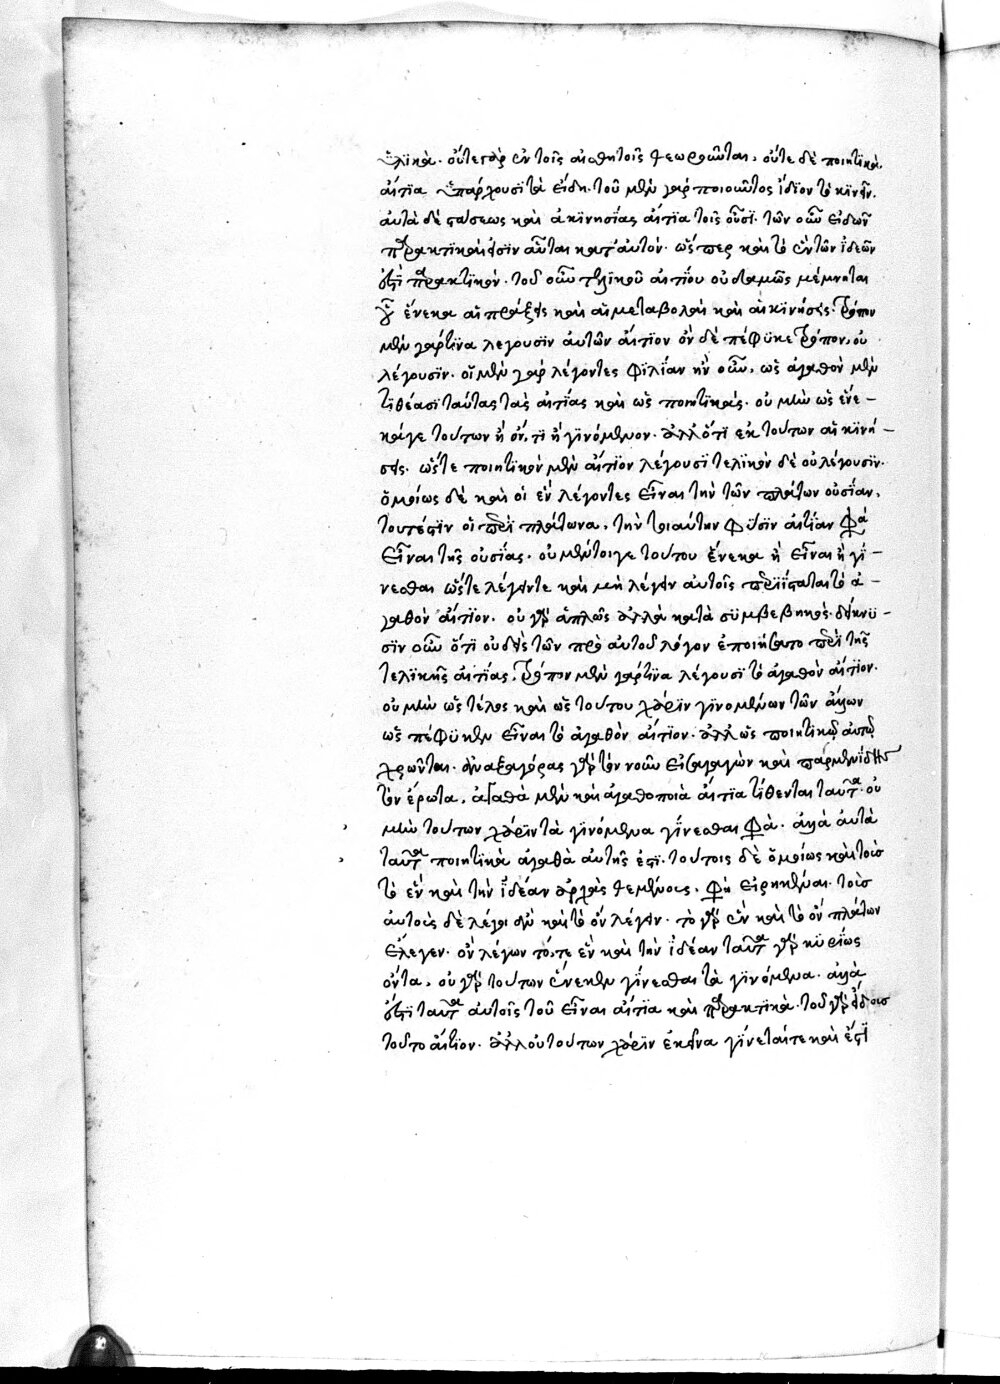 ὑλικὰ. οὔτε γὰρ ἐν τοῖς αἰσθητοῖς θεωροῦνται, οὔτε δὲ ποιητικὰ
αἴτια ὑπάρχουσι τὰ εἴδη. τοῦ μὲν γὰρ ποιοῦντος ἴδιον τὸ κινεῖν.
αὐτὰ δὲ στάσεως καὶ ἀκινησίας αἴτια τοῖς οὖσι. τῶν οὖν εἰδῶν
πρακτικαί εἰσιν αὗται κατ' αὐτόν. ὥσπερ καὶ τὸ ἓν τῶν ἰδεῶν
ἐστὶ πρακτικόν. τοῦ οὖν τελικοῦ αἰτίου οὐδαμῶς μέμνηται
οὗ ἕνεκα αἱ πράξεις καὶ αἱ μεταβολαὶ καὶ αἱ κινήσεις. τρόπον
μὲν γάρ τινα λέγουσιν αὐτῶν αἴτιον ὃν δὲ πέφυκε τρόπον, οὐ
λέγουσιν. οἱ μὲν γὰρ λέγοντες φιλίαν ἢ νοῦν, ὡς ἀγαθὸν μὲν
τιθέασι ταύτας τὰς αἰτίας καὶ ὡς ποιητικάς. οὐ μὴν ὡς ἕνε-
κά γε τούτων ἢ ὄν, τι ἢ γινόμενον. ἀλλ' ὅτι ἐκ τούτων αἱ κινή-
σεις. ὥστε ποιητικὸν μὲν αἴτιον λέγουσι τελικὸν δὲ οὐ λέγουσιν.
ὁμοίως δὲ καὶ οἱ ἓν λέγοντες εἶναι τὴν τῶν πάντων οὐσίαν,
τουτέστιν οἱ περὶ πλάτωνα, τὴν τοιαύτην φύσιν αἰτίαν φα
εἶναι τῆς οὐσίας. οὐ μέντοι γε τούτου ἕνεκα ἢ εἶναι ἢ γί-
νεσθαι ὥστε λέγειν τε καὶ μὴ λέγειν αὐτοῖς περιίσταται τὸ ἀ-
γαθὸν αἴτιον. οὐ γὰρ ἁπλῶς ἀλλὰ κατὰ συμβεβηκός. δείκνυ-
σιν οὖν ὅτι οὐδεὶς τῶν πρὸ αὐτοῦ λόγον ἐποιήσατο περὶ τῆς
τελικῆς αἰτίας, τρόπον μὲν γάρ τινα λέγουσι τὸ ἀγαθὸν αἴτιον.
οὐ μὴν ὡς τέλος καὶ ὡς τούτου χάριν γινομένων τῶν ἄλλων
ὡς πέφυκεν εἶναι τὸ ἀγαθὸν αἴτιον. ἀλλ' ὡς ποιητικῷ αὐτῷ
χρῶνται. ἀναξαγόρας γὰρ τὸν νοῦν εἰσαγαγὼν καὶ παρμενίδης
τὸν ἔρωτα, ἀγαθὰ μὲν καὶ ἀγαθοποιὰ αἴτια τίθενται ταῦτα. οὐ
μὴν τούτων χάριν τὰ γινόμενα γίνεσθαι φασὶ. ἀλλὰ αὐτὰ
ταῦτα ποιητικὰ ἀγαθὰ αὐτῆς ἐστι. τούτοις δὲ ὁμοίως καὶ τοὺς
τὸ ἓν καὶ τὴν ἰδέαν ἀρχὰς θεμένους. φησὶ εἰρηκέναι. τοὺς
αὐτοὺς δὲ λέγει ἓν καὶ τὸ ὂν λέγειν. τὸ γὰρ ἓν καὶ τὸ ὂν πλάτων
ἔλεγεν. ὂν λέγων τό, τε ἓν καὶ τὴν ἰδέαν ταῦτα γὰρ κυρίως
ὄντα. οὐ γὰρ τούτων ἕνεκεν γίνεσθαι τὰ γινόμενα. ἀλλὰ
ἐστὶ ταῦτα αὐτοῖς τοῦ εἶναι αἴτια καὶ πρακτικὰ. τοῦ γὰρ εἴδους
τοῦτο αἴτιον. ἀλλ' οὐ τούτων χάριν ἐκεῖνα γίνεταί τε καὶ ἐστὶ